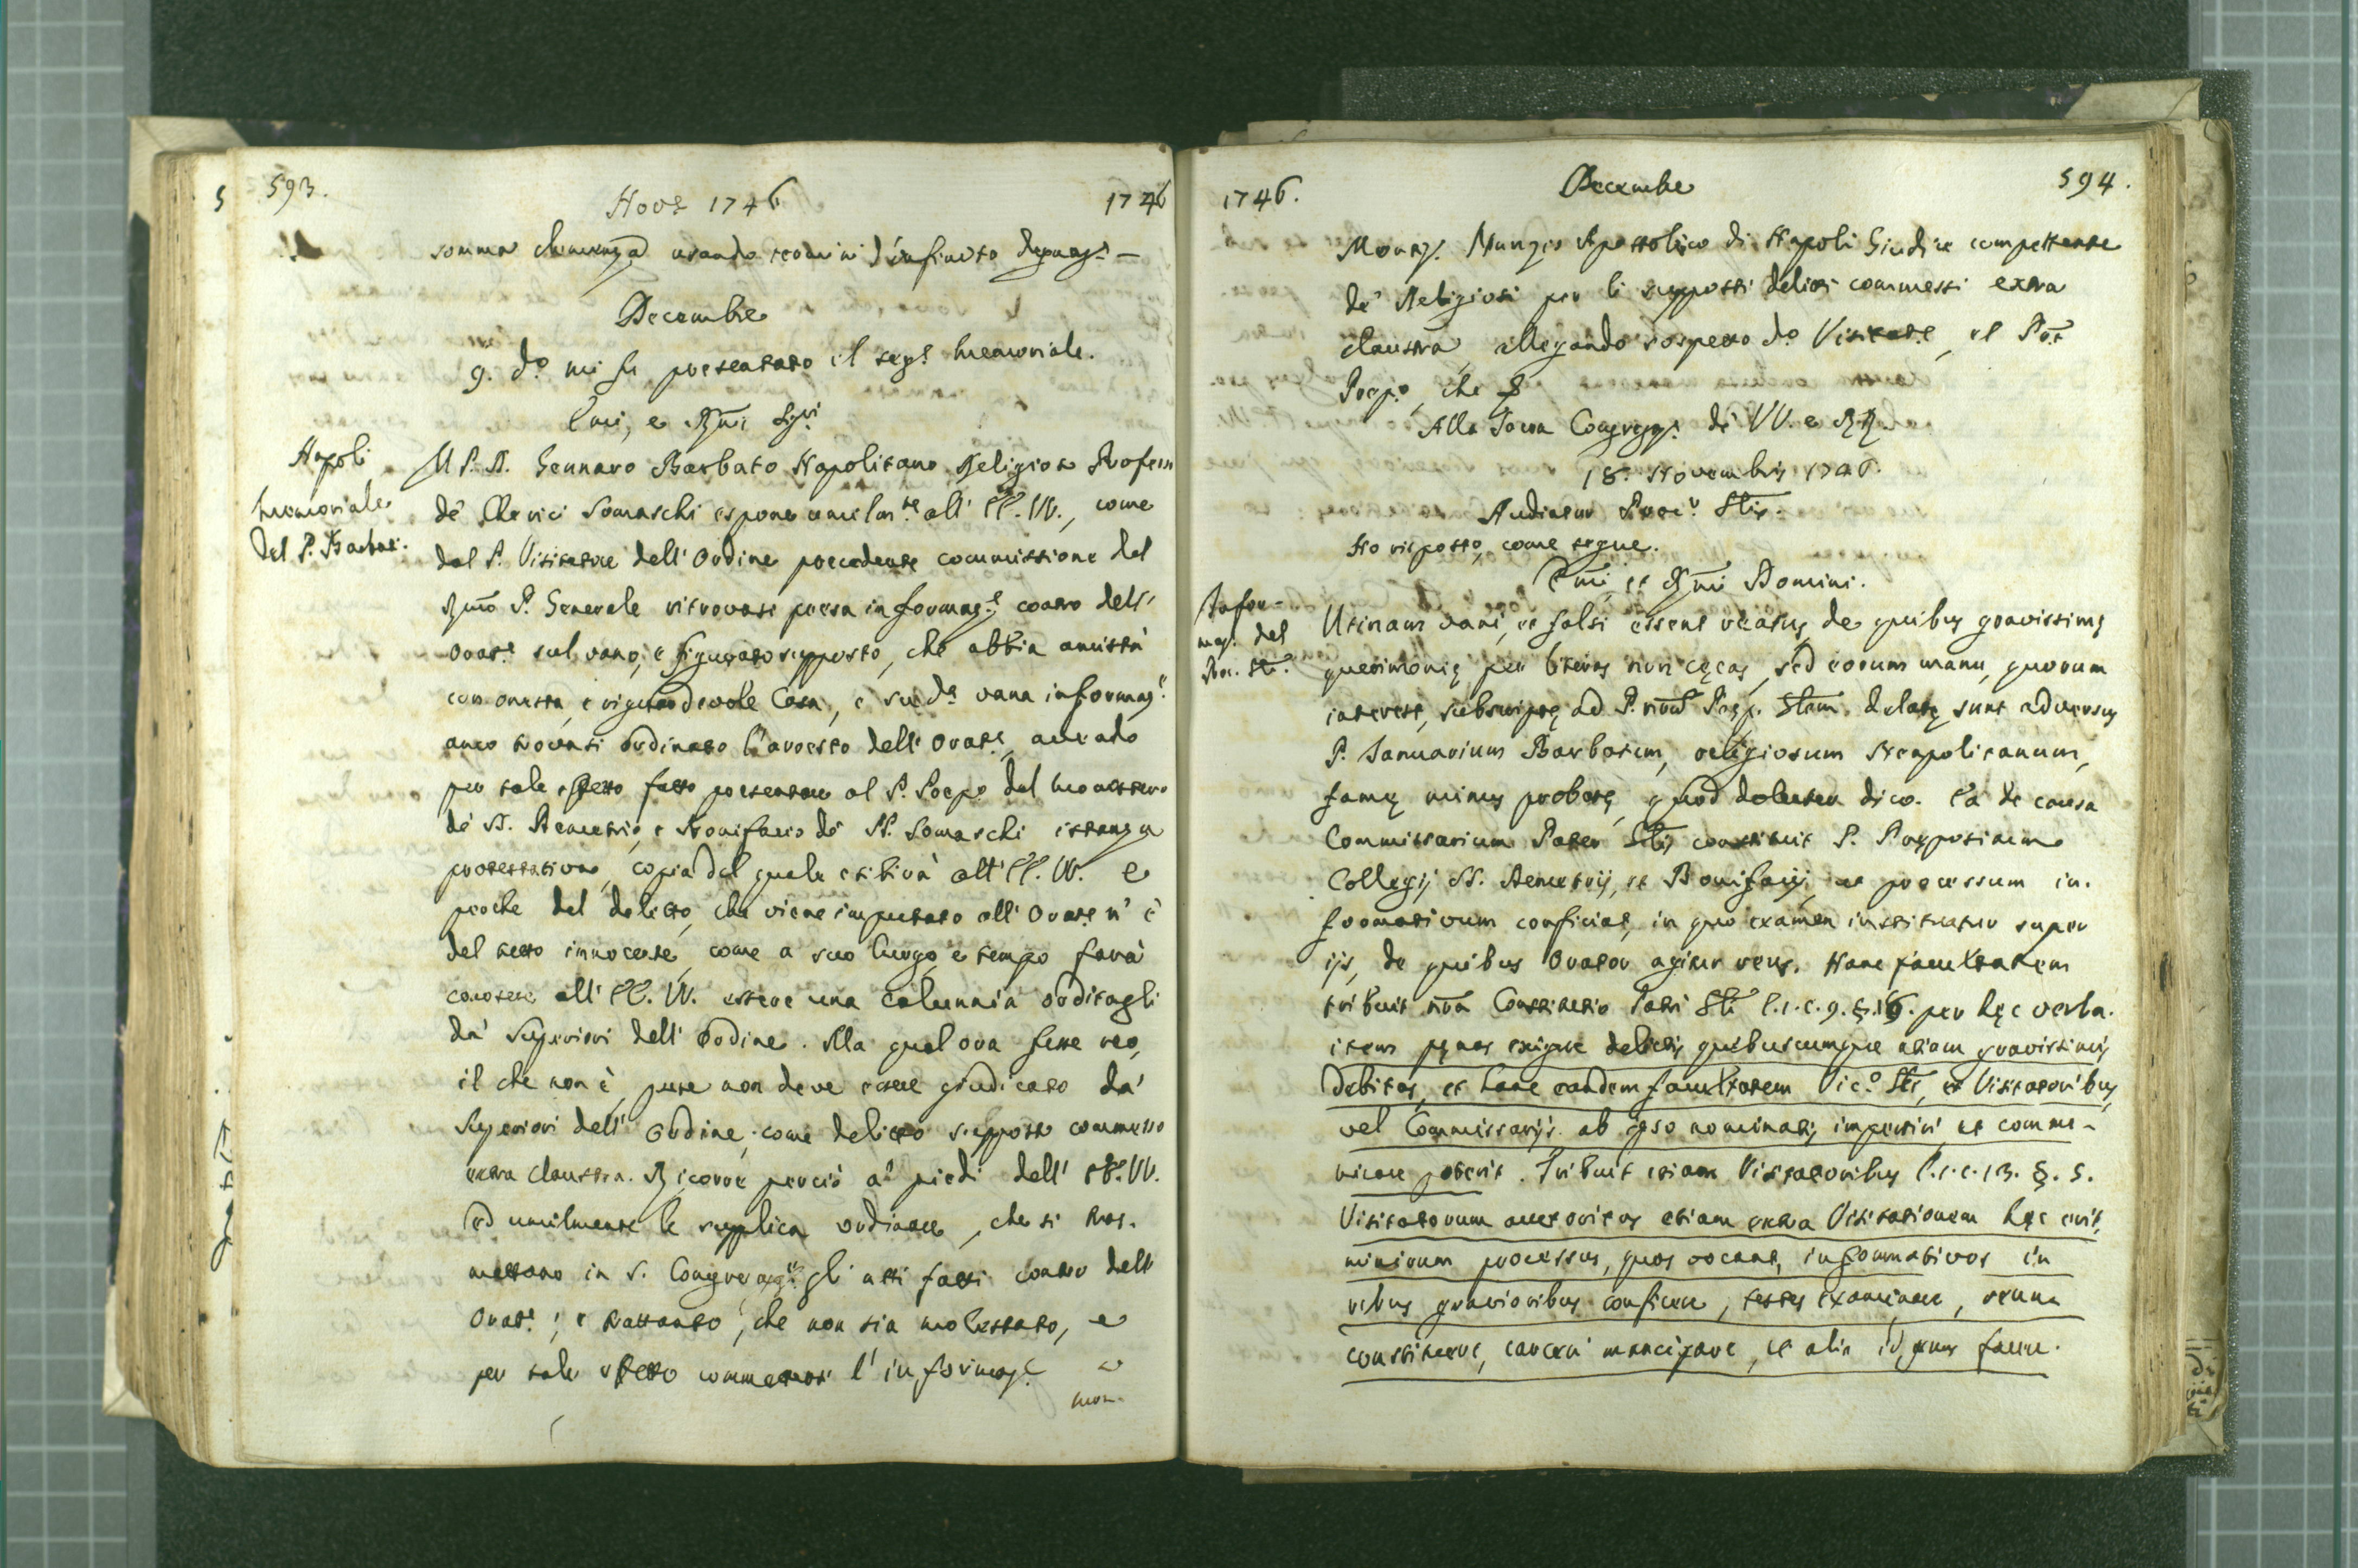 593.
Nov.e 1746
1746
somma clemenza usando teodini d'infinito depnaz.e —
Decembre
9. d.o mi fu presentato il seg.e memoriale.
Emi, e Rmi Sig.ri
Napoli
memoriale
del P. Barbat.
Il P. D. Gennaro Barbato Napolitano Religioso Profess
de' Cherici Somaschi espone umilm.te all' EE. VV., come
dal P. Visitatore dell' Ordine precedente commissione del
Rmo P. Generale ritrovasi presa informaz.e contro dell'
Orat.e sul vano, e figurato supposto, che abbia amistà
con onesta, e riguardevole Casa, e su d.a vana informaz.e
anco trovasi ordinato l'arresto dell' Orat.e, avendo
per tale effetto fatto presentare al P. Prep.o del monistero
de' SS. Demetrio, e Bonifacio de' PP. Somaschi istanza
protestativa, copia del quale esibirà all' EE. VV. e
perche del delitto, che viene imputato all' Orat.e n' è
del tutto innocente, come a suo luogo, e tempo farà
conoscere all' EE. VV. essere una calunnia orditagli
da' Superiori dell' Ordine. Alla qual ora fusse reo,
il che non è, pure non deve essere giudicato da'
Superiori dell' Ordine, come delitto supposto commesso
extra claustra. Ricorre perciò a' piedi dell' EE. VV.
ed umilmente le supplica ordinare, che si tras-
mettano in S. Congregaz.e gli atti fatti contro dell'
Orat.e, e trattanto, che non sia molestato, e
per tale effetto commettersi l' informaz.e a
mon-
1746.
Decembre
594.
Monsig. Nunzio Apostolico di Napoli Giudice competente
de' Religiosi per li supposti delitti commessi extra
claustra, allegando sospetto d.o Visitat.e, et P.
Prep.o, che
Alla Sacra Congregaz. de' VV. e RR.
18. Novembris 1746.
Audiatur Proc.r Glis.
Ho risposto, come segue.
Emi, et Rmi Domini.
Infor-
maz. del
Proc. Gle.
Utinam vani, et falsi essent reatus, de quibus gravissimę
querimonię per literas non cęcas, sed eorum manu, quorum
interest, subscriptę ad P. nrum Pręp. Glem. delatę sunt adversus
P. Januarium Barbatum, religiosum Neapolitanum,
famę minus probatę, quod dolenter dico. Ea de causa
Commissarium Pater Glis constituit P. Prępositum
Collegij SS. Demetrij, et Bonifacij, ut processum in-
formativum conficiat, in quo examen instituatur super
ijs, de quibus Orator agitur reus. Hanc facultatem
tribuit nra Constitutio Patri Gli l. 1. c. 9. §. 16. per hęc verba.
item pęnas exigere delictis quibuscumque etiam gravissimis
debitas, et hanc eandem facultatem Vic.o Gli, et Visitatoribus,
vel Commissarijs ab ipso nominatis impertiri, et commu-
nicare poterit. Tribuit etiam Visitatoribus l. 1. c. 13. §. 5.
Visitatorum auctoritas etiam extra Visitationem hęc erit,
nimirum processus, quos vocant, informativos in
rebus gravioribus conficere, testes examinare, reum
constituere, carceri mancipare, et alia id genus facere.